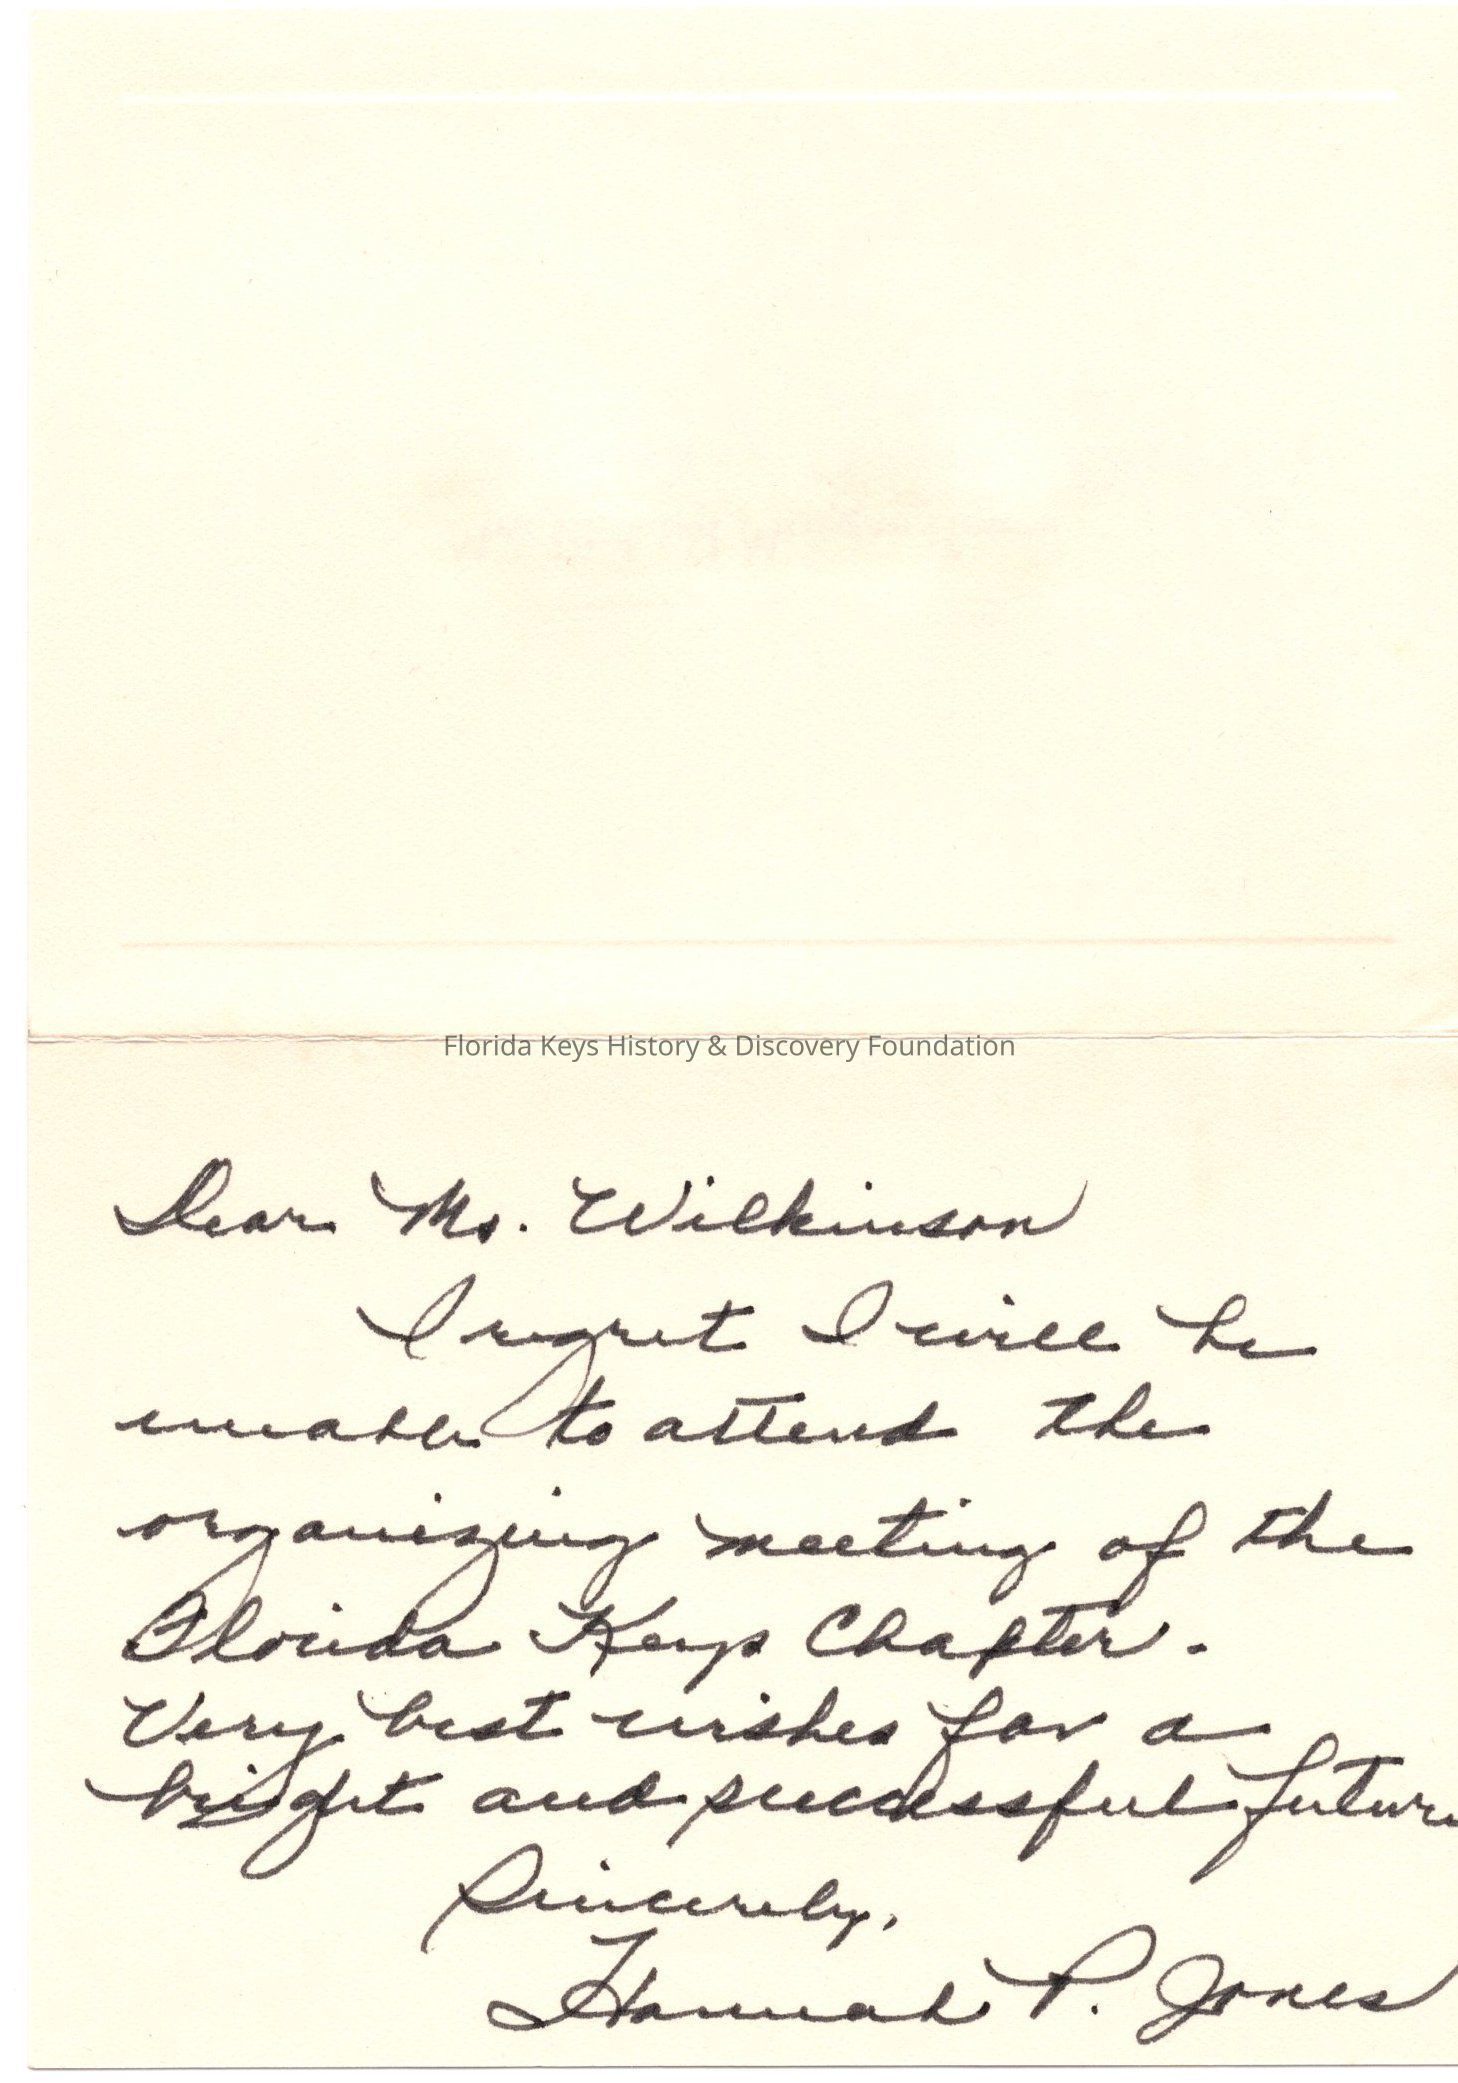 Florida Keys History & Discovery Foundation
Dear Ms. Wilkinson
I regret I will be
unable to attend the
organizing meeting of the
Florida Keys Chapter.
Very best wishes for a
bright and successful future
Sincerely,
Hannah P. Jones